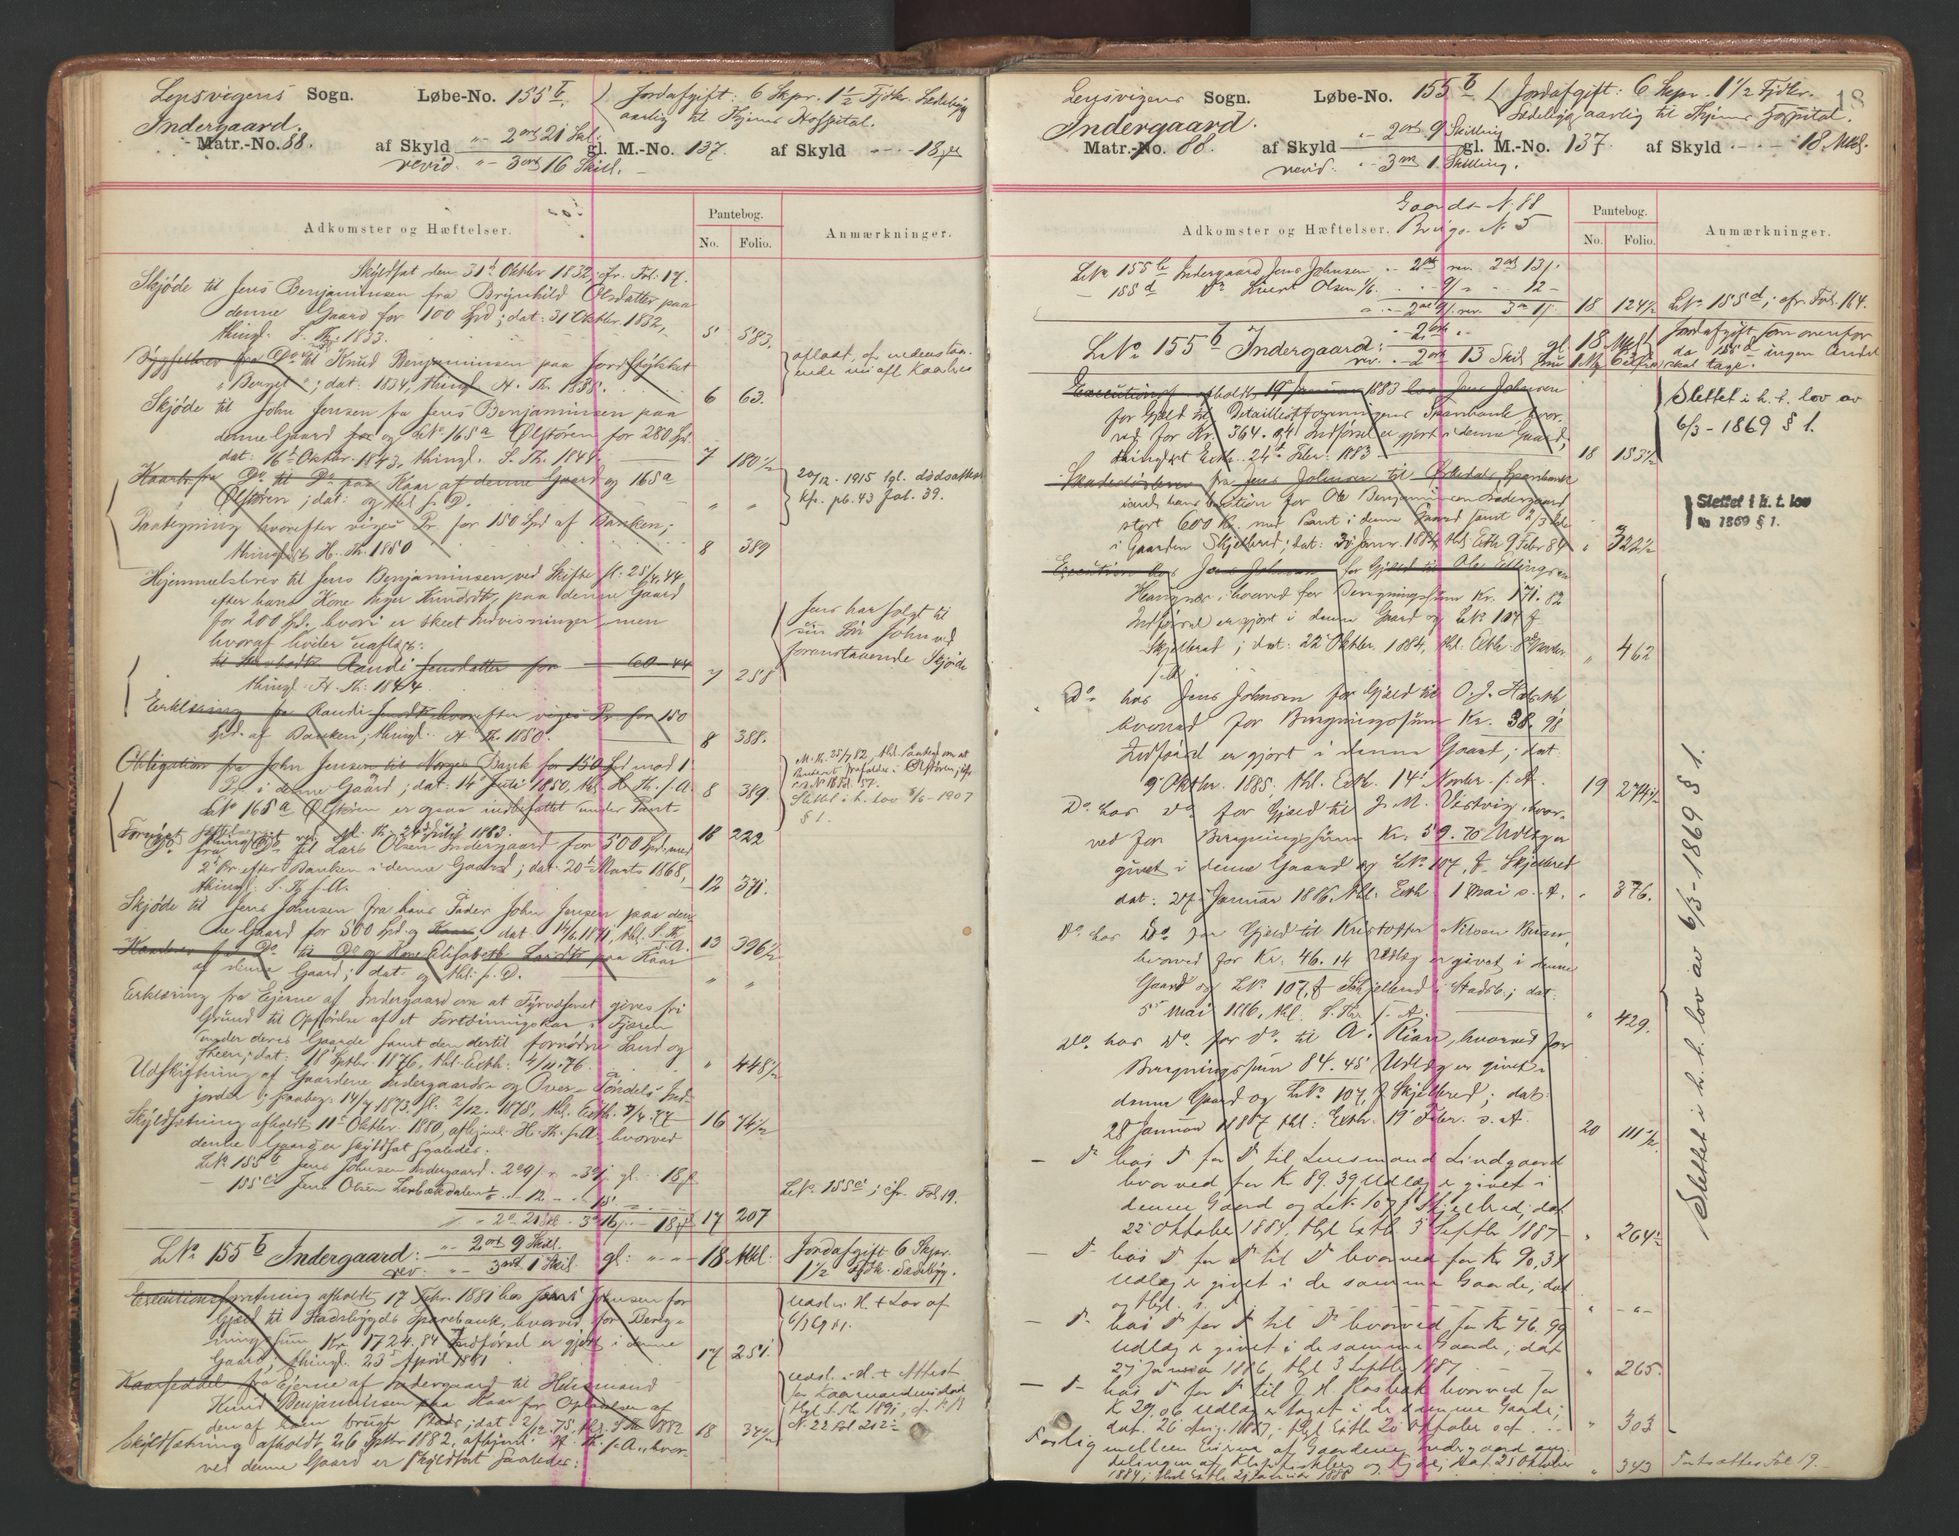 Lensvigens Sogn. Løbe-No. 155 b, Jordafgift: 6 Skpr. 1½ Fjdkr. Sædebyg
Indergaard. aarlig til Thjems Hospital.
Matr.-No. 88. af Skyld 2 ort 21 Skl. gl. M.-No. 137. af Skyld 18
revid. 3 ort 16 Skil.
Adkomster og Hæftelser.
Pantebog.
No. Folio.
Anmærkninger.
Skyldsat den 31te Oktbr 1832, cfr. Fol. 17.
Skjøde til Jens Benjaminsen fra Brynhild Olsdatter paa
denne Gaard for 100 Spd; dat: 31 Oktbr. 1832,
thingl. S. Th. 1833. 5 583.
Bygselbrev fra Do til Knud Benjaminsen paa Jordstykket
"Berget"; dat. 1834, thingl. H. Th. 1838. 6 63.
aflæst, cfr nedenstaaende
Skjøde til John Jensen fra Jens Benjaminsen paa
denne Gaard og LNo 165a Ølstøren for 280 Spd
dat: 16de Oktbr. 1843, thingl. S. Th. 1844. 7 180½
Kaarbr. fra Do til Do paa Kaar af denne Gaard og 165a
Ølstøren; dat: og thl. s. D. " "
20/12 - 1915 tgl. dødsattest
kfr. pb. 43 fol. 39.
Paategning hvorefter viges Pr. for 150 Spd af Banken;
thingl. H. Th. 1850 8 389
Hjemmelsbrev til Jens Benjaminsen ved Skifte
efter hans Kone Inger Knudsdtr, paa denne Gaard
for 200 Spd. hvori er skeet Indvisninger, men
hvoraf hviler uaflæst:
til Randi Jensdatter for 60-44
thingl. H. Th. 1844. 7 258
Jens har solgt til
sin Søn John ved
foranstaaende Skjøde
Erklæring fra Randi Jensdtr hvorefter viges Pr for 150
Spd. af Banken; thingl. H. Th. 1850. 8 388.
Obligation fra John Jensen til Norges Bank for 150 Spd mod 1
Pr. i denne Gaard; dat: 14 Juli 1850, thl. H. Th. s. A. 8 389.
LNo 165a Ølstøren er ogsaa indbefattet under Pant-
18 222
Slettet i h. t. lov 8/6-1907
§ 1.
fra Do til Lars Olsen Indergaard for 500 Spd. med
2 Pr. efter Banken i denne Gaard; dat: 20de Marts 1868,
thingl. S. Th. s. A. 12 371.
Skjøde til Jens Johnsen fra hans Fader John Jensen paa den-
ne Gaard for 500 Spd. og Kaar dat 14/6 1871, thl. S. Th.
s. A. 13 396½
Kaarbrev fra Do til Do og Kone Elisabeth Larsdtr paa Kaar
af denne Gaard; dat. og thl. s. D. " "
Erklæring fra Eierne af Indergaard om at Fyrvæsenet gives fri
Grund til Opførelse af et Fortøiningskar i Fjæren
under deres Gaarde samt den dertil fornødne Sand og
Steen; dat: 18 Septbr 1876, thl. Exth. 4/11 76. " 448½
Udskiftning af Gaardene Indergaards og Over-Tøndels Ind-
jorder; paabeg: 14/7 1873, sl. 2/12. 1878, thl. Exth. 16 74½
Skyldsætning afholdt 11te Oktbr 1880, afhjeml. H. Th. s. A., hvorved
denne Gaard er skyldsat saaledes:
LNo 155b Jens Johnsen Indergaard
- 155c Jens Olsen Lerbækdalen
17 207
LNo 155c; cfr. Fol 19.
LNo 155b Indergaard: 2 ort 9 Skil. gl: 18 Mkl.
rev: 3 ort 1 Skil.
Jordafgift 6 Skpr.
1½ Fjdk. Sædebyg.
Executionsforretning afholdt 17 Febr. 1881 hos Jens Johnsen for
Gjæld til Stadsbygds Sparebank, hvorved for Bereg-
ningssum Kr. 1724.84 Indførsel er gjort i denne
Gaard, thingl. 23 April 1881 17 251.
uasl. i H. t. Lov af
6/3 69 § 1.
Kaarseddel fra Eierne af Indergaard til Huusmand
Knud Benjaminsen paa Kaar for Opladelsen af
den af ham brugte Plads; dat: 2/12 78, thl. S. Th. 1882 18
uasl. i H. t. Attest
Skyldsætning afholdt 26 Septbr 1882, afhjeml. H. Th. s. A., hvor-
ved denne Gaard er skyldsat saaledes:
18
Lensvigens Sogn. Løbe-No. 155 b Jordafgift: 6 Skpr. 1½ Fjdkr.
Indergaard. Sædebyg aarlig til Thjems Hospital.
Matr.-No. 88. af Skyld 2 ort 9 Skilling gl. M.-No. 137. af Skyld 18 Mkl.
revid. 3 ort 1 Skilling.
Gaards N. 88
Brugs N. 5
Adkomster og Hæftelser.
Pantebog.
No. Folio.
Anmærkninger.
LNo 155b Indergaard Jens Johnsen 2 ort rev. 2 ort 13
- 155d Do Sivert Olsen 9 12
18 124½ LNo 155d; cfr. Fol. 164.
LNo 155b Indergaard: 2 ort gl. 18 Mkl.
rev. 2 ort 13 Skil
Jordafgift som ovenfor
da 155d ingen Andel
skal tage.
Executionsf. afholdt 19 Januar 1883 hos Jens Johnsen
for Gjæld til Detailleistforeningens Sparebank hvor-
ved for Kr. 364.94 Indførsel er gjort i denne Gaard;
thinglæst Exth. 24de Febr. 1883 18 153½
Slettet i h. t. lov av
6/3 - 1869 § 1.
Skadesløsbrev fra Jens Johnsen til Ørkedals Sparebank
for Ole Benjaminsen Indergaard
stort 600 Kr. med Pant i denne Gaard samt 2/3 Dele
i Gaarden Skjelbred; dat: 31 Janr. 1884, thl. Exth 9 Febr 84 " 322½
Slettet i h. t. lov
1869 § 1.
Execution hos Jens Johnsen for Gjæld til Ole Ellingsen
Hangnæs, hvorved for Beregningssum Kr. 171.82
Indførsel er gjort i denne Gaard og LNo 107f
Skjelbred; dat: 22 Oktbr. 1884, thl. Exth. 8 Novbr.
s. A. " 462
Do hos Jens Johnsen for Gjæld til O. J.
hvorved for Beregningssum Kr. 38.98
Indførsel er gjort i denne Gaard; dat.
9 Oktbr. 1885, thl. Exth. 14 Novbr. s. A. 19 274½
Do hos Do for Gjæld til J. M. Vistvig, hvor-
ved for Beregningssum Kr. 59.70 Udlæg er
givet i denne Gaard og LNo 107, f Skjelbred
dat: 27 Januar 1886, thl: Exth 1 Mai s. A. " 376.
Do hos Do for Gjæld til Kristoffer Nilsen
hvorved for Kr. 46.14 Udlæg er givet i denne
Gaard og LNo 107, f Skjelbred i Stadsb.; dat:
5 Mai 1886, thl. S. Th s. A. " 429.
Do hos Do for Do til A. Rian, hvorved for
Beregningssum 84.45 Udlæg er givet i
denne Gaard og LNo 107, f Skjelbred; dat:
28 Januar 1887 thl: Exth. 19 Febr. s. A. 20 111½
— Do hos Do for Do til Lensmand Lindgaard
hvorved for Kr 89.39 Udlæg er givet i
denne Gaard og LNo 107f Skjelbred; dat
22 Oktober 1884, thgl Exth 3 Septbr 1887 " 264½
— Do hos Do for Do til Do hvorved for Kr 90,34
Udlæg er givet i de samme Gaarde; dat
og thgl. s. D. " -"-
— Do hos Do for Do til Do hvorved for Kr 76.99
Udlæg er givet i de samme Gaarde; dat
27 Januar 1886, thgl 3 Septbr 1887. " 265.
— Do hos Do for Do til J. H. Rosbak hvorved for
Kr 29,06 Udlæg er taget i de samme Gaarde;
dat. 26 Aug. 1887, thgl Exth 20 Oktober s. A. " 303
Forlig mellem Eierne af Gaardene Indergaard ang.
delingen af
1884; thgl Exth 21 Januar 1888 " 343
Slettet i h. t. lov av 6/3-1869 § 1.
Fortsættes Fol 19.